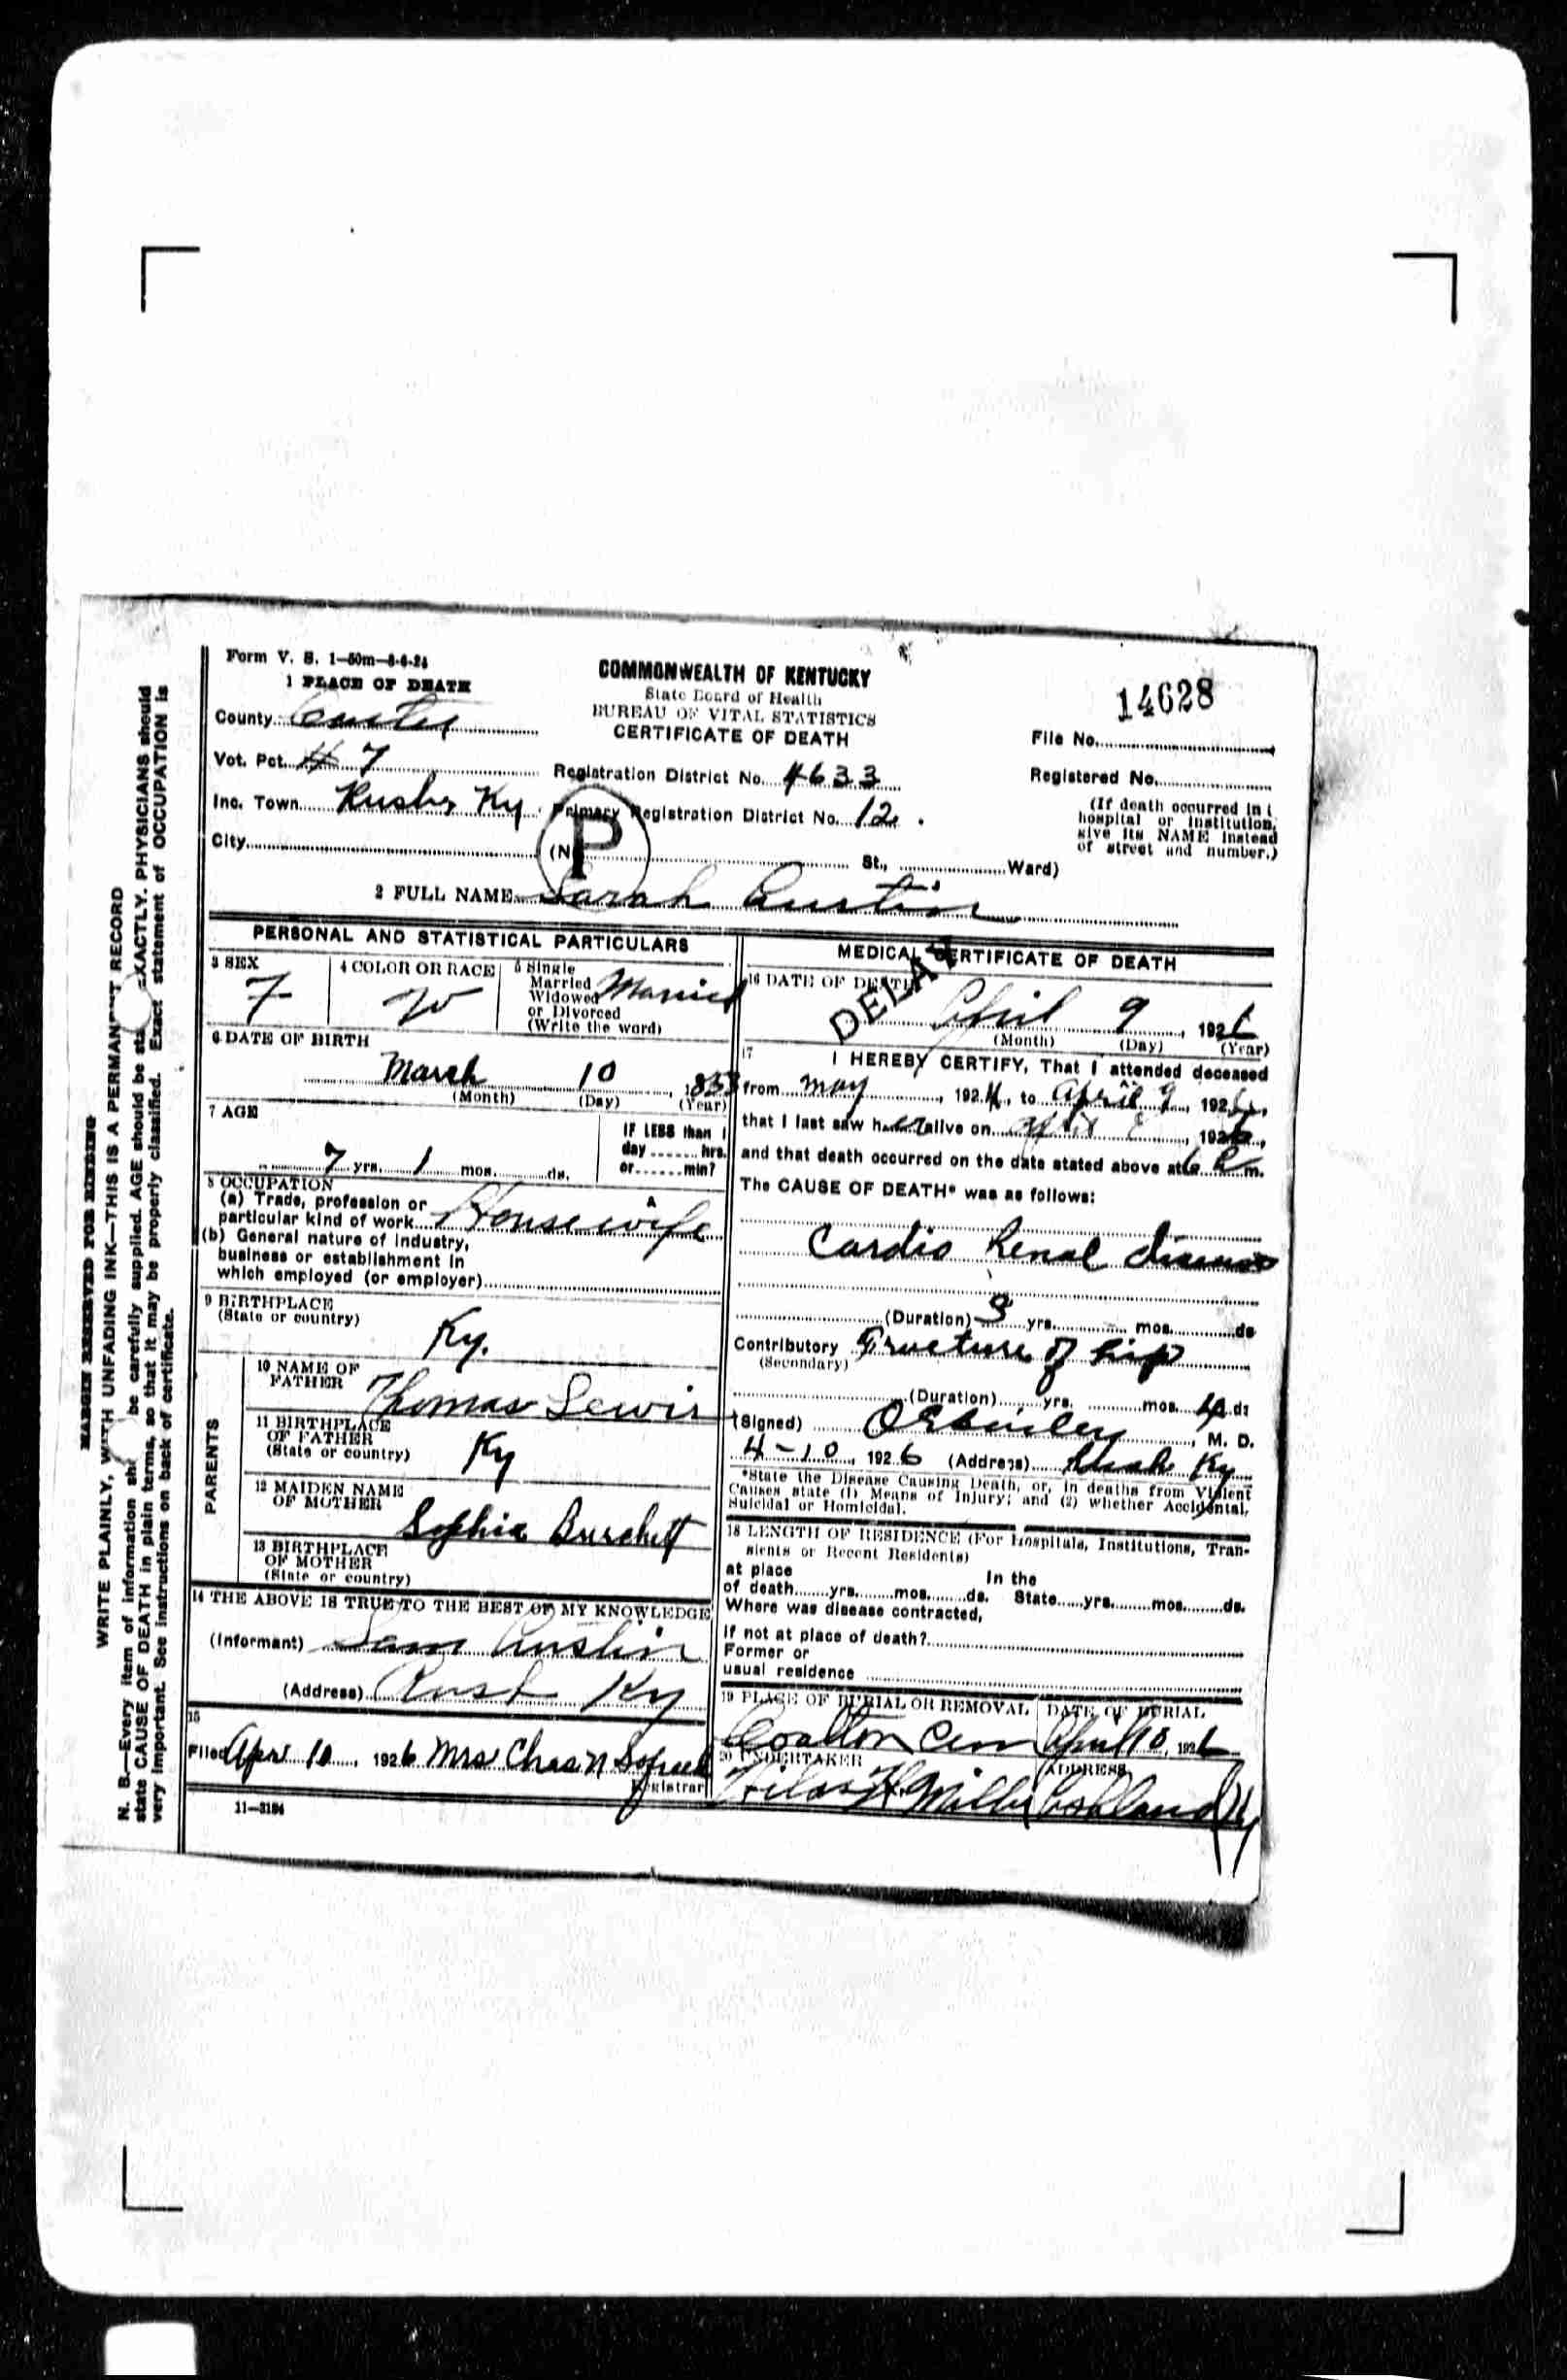 MARGIN RESERVED FOR BINDING
WRITE PLAINLY, WITH UNFADING INK—THIS IS A PERMAN T RECORD
N. B.—Every item of information sh be carefully supplied. AGE should be sta EXACTLY. PHYSICIANS should
state CAUSE OF DEATH in plain terms, so that it may be properly classified. Exact statement of OCCUPATION is
very important. See instructions on back of certificate.
Form V. S. 1—50m—8-6-24
1 PLACE OF DEATH
County Carter
Vot. Pct. # 7
Inc. Town Rusby Ky
City
COMMONWEALTH OF KENTUCKY
State Board of Health
BUREAU OF VITAL STATISTICS
CERTIFICATE OF DEATH
Registration District No. 4633
Primary Registration District No. 12
P
(N St., Ward)
14628
File No.
Registered No.
(If death occurred in
hospital or institution,
give its NAME instead
of street and number.)
2 FULL NAME Sarah Austin
PERSONAL AND STATISTICAL PARTICULARS
3 SEX
F
4 COLOR OR RACE
W
5 Single
Married
Widowed
or Divorced
(Write the word)
Married
6 DATE OF BIRTH
March 10, 1853
(Month) (Day) (Year)
7 AGE
7 yrs. 1 mos. ds.
IF LESS than 1
day hrs.
or min?
8 OCCUPATION
(a) Trade, profession or
particular kind of work Housewife
(b) General nature of industry,
business or establishment in
which employed (or employer)
9 BIRTHPLACE
(State or country)
Ky.
PARENTS
10 NAME OF
FATHER
Thomas Lewis
11 BIRTHPLACE
OF FATHER
(State or country)
Ky
12 MAIDEN NAME
OF MOTHER
Sophia Burchett
13 BIRTHPLACE
OF MOTHER
(State or country)
14 THE ABOVE IS TRUE TO THE BEST OF MY KNOWLEDGE
(Informant) Sam Austin
(Address) Rush Ky
15
Filed Apr 10, 1926 Mrs Chas N
Registrar
11—3184
MEDICAL CERTIFICATE OF DEATH
DELAY
16 DATE OF DEATH
April 9, 1926
(Month) (Day) (Year)
17
I HEREBY CERTIFY, That I attended deceased
from may, 1924, to April 9, 1926,
that I last saw her alive on April 8, 1926,
and that death occurred on the date stated above at 6 P m.
The CAUSE OF DEATH* was as follows:
Cardio Renal disease
(Duration) 3 yrs. mos. ds
Contributory Fracture of hip
(Secondary)
(Duration) yrs. mos. ds
(Signed) , M. D.
4-10, 1926 (Address) Rush Ky
*State the Disease Causing Death, or, in deaths from Violent
Causes state (1) Means of Injury; and (2) whether Accidental,
Suicidal or Homicidal.
18 LENGTH OF RESIDENCE (For Hospitals, Institutions, Tran-
sients or Recent Residents)
at place In the
of death yrs. mos. ds. State yrs. mos. ds.
Where was disease contracted,
If not at place of death?
Former or
usual residence
19 PLACE OF BURIAL OR REMOVAL
Coalton Cem
DATE OF BURIAL
April 10, 1926
20 UNDERTAKER
Miller
ADDRESS
Ashland Ky